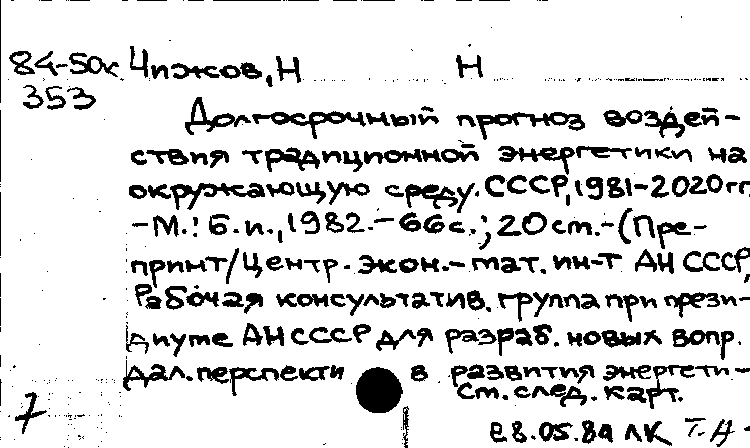 84-50к Чижов, Н Н
353
Долгосрочный прогноз воздей-
ствия традиционной энергетики на
окружающую среду. СССР, 1981-2020гг
-М.: Б.и., 1982.-66с.; 20см.-(Пре-
принт/Центр. экон.-мат. ин-т АН СССР,
Рабочая консультатив. группа при прези-
диуме АН СССР для разраб. новых вопр.
дал. перспекти в развития энергети-
См. след. карт.
7
28.05.84 ЛК Т.А-